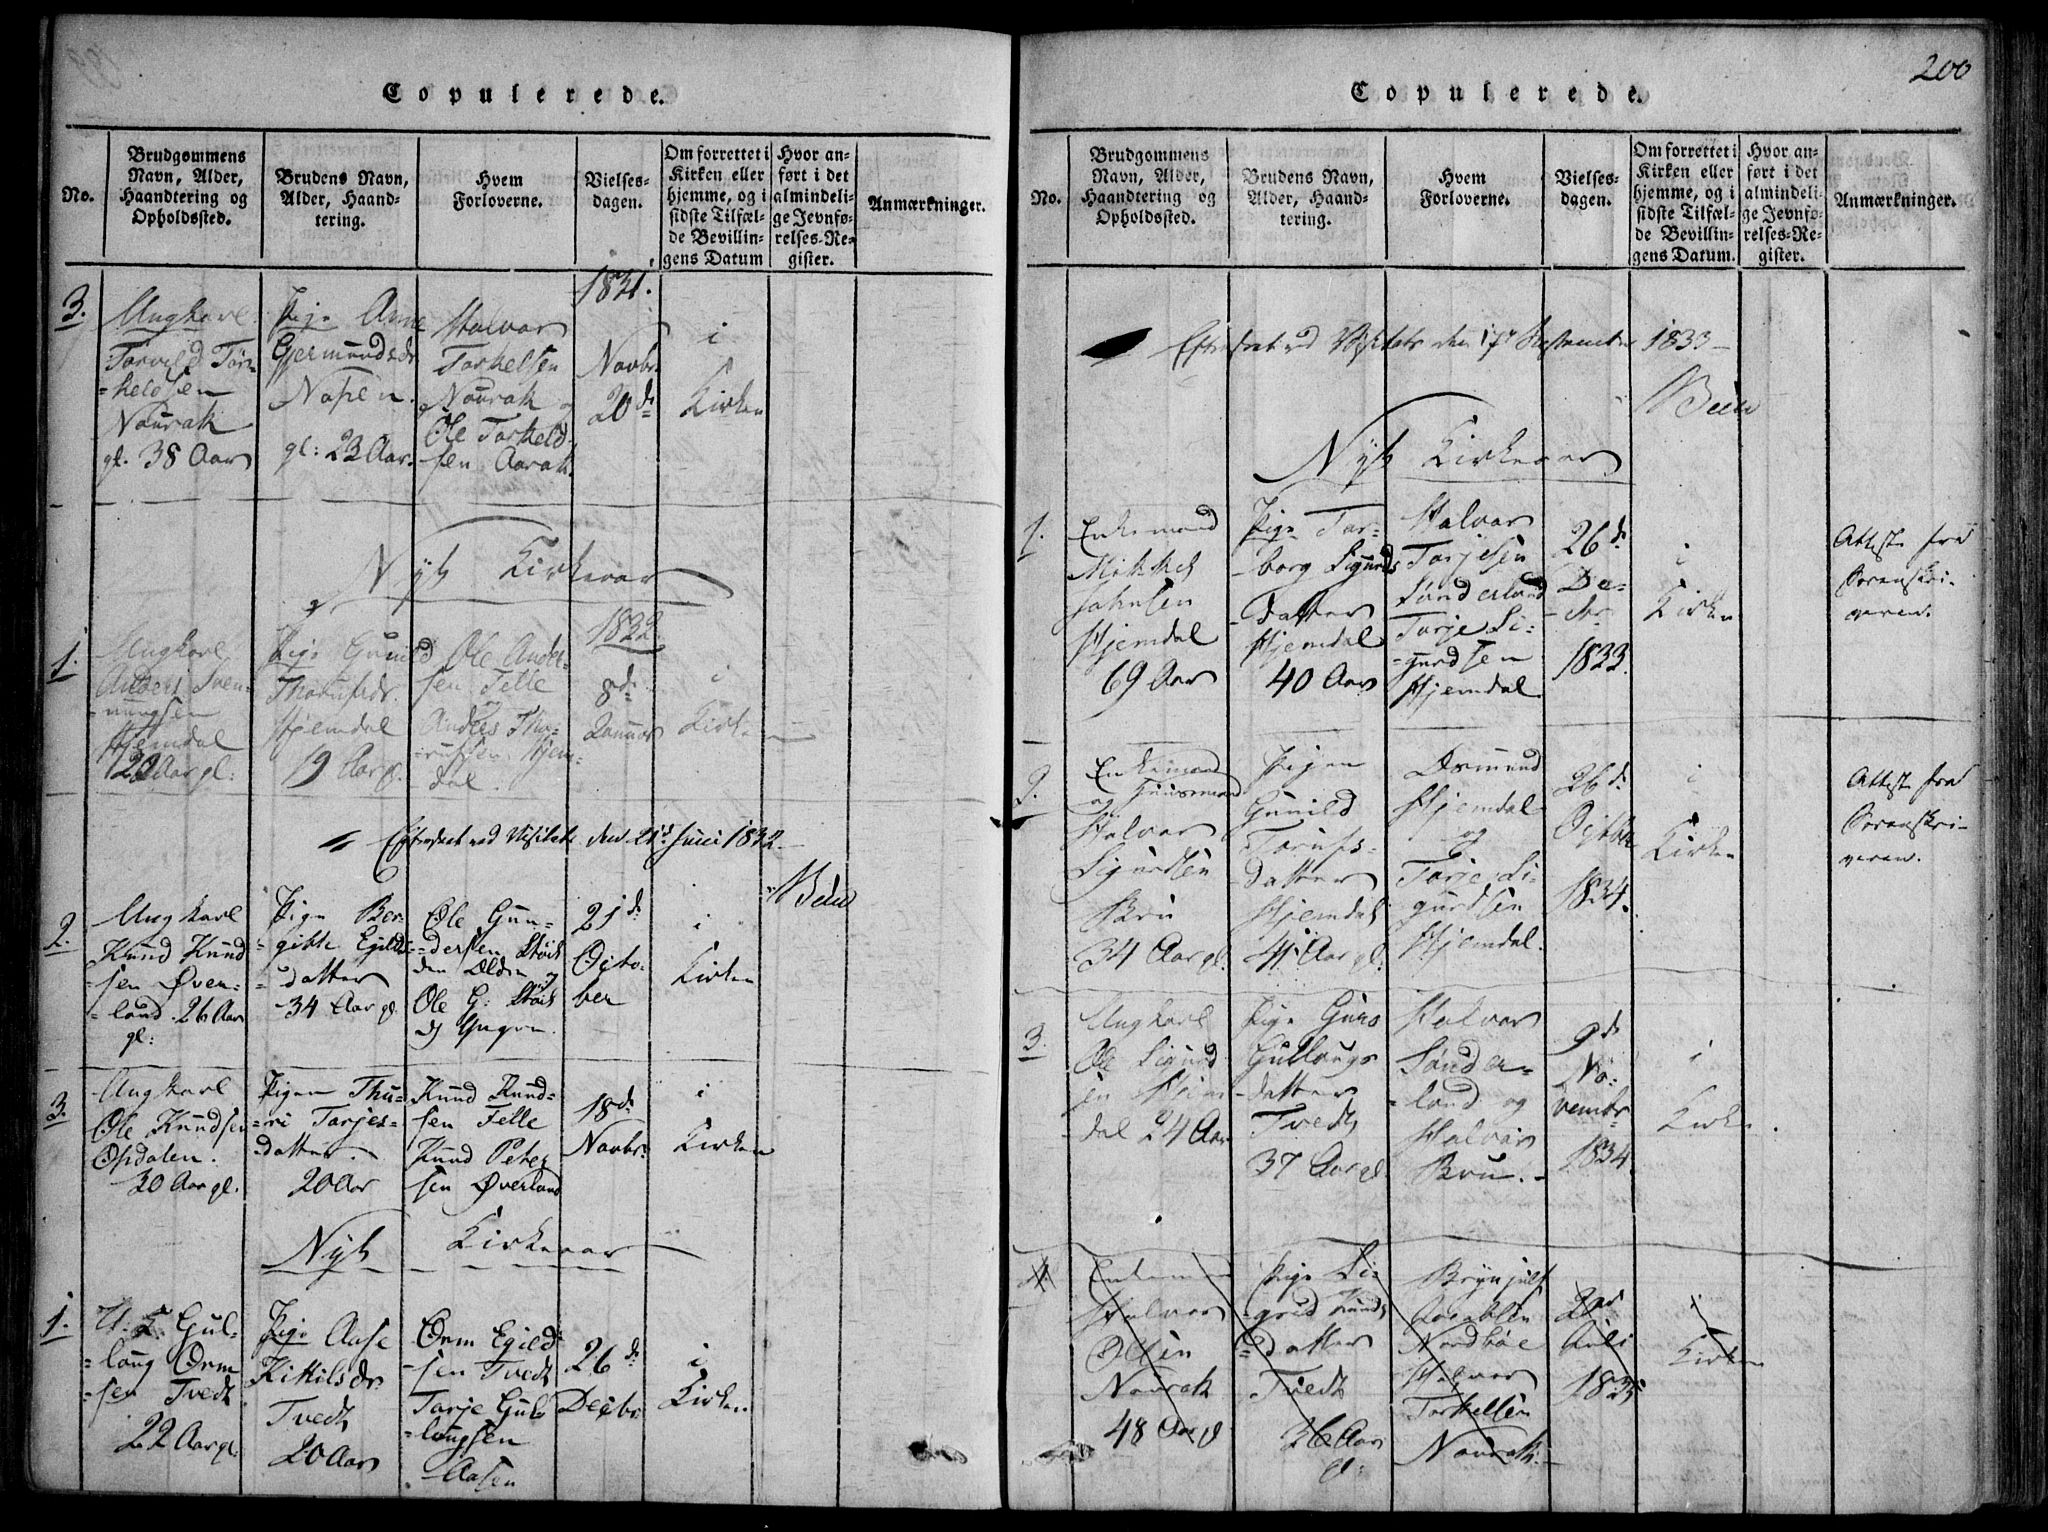 Copulerede.
No.
Brudgommens
Navn, Alder,
Haandtering og
Opholdssted.
Brudens Navn,
Alder, Haand-
tering.
Hvem
Forloverne.
Vielses-
dagen.
Om forrettet i
Kirken eller
hjemme, og i
sidste Tilfæl-
de Bevillin-
gens Datum
Hvor an-
ført i det
almindeli-
ge Jevnfø-
relses-Re-
gister.
Anmærkninger.
3.
Ungkarl
Torkeldsen
Naurak
gl. 38 Aar
Pige Anne
Gjermundsdr
Napen.
gl: 23 Aar.
Halvor
Torkelsen
Naurak og
Ole Torkeld-
sen Aarak
1831.
Novbr
20d.
i
Kirken
Nyt Kirkeaar
1.
Ungkarl
Anders Sven-
nungsen
Hjemdal
Aar gl:
Pige Gunild
Hjemdal
19 Aar gl.
Ole Ander-
sen Felle
og
Anders Tho-
Hjem-
dal.
1832.
8d.
Januar
i
Kirken
Efterseet ved Visitats den 21d Juni 1832.
2.
Ungkarl
Knud Knud
sen Øver-
land. 26 Aar
gl:
Pige Ber-
gitte Egilds-
datter
34 Aar gl.
Ole Gun-
dersen
den Ældre og
Ole G:
d Yngre.
21d.
Octo-
ber
i
Kirken
3.
Ungkarl
Ole Knudsen
Opdalen.
30 Aar gl.
Pigen Thu-
ri Tarjes-
datter.
20 Aar
Knud Knud-
sen Felle
Knud Peter
sen Øverland
18d.
Novbr.
i
Kirken
Nyt Kirkeaar
1.
Gul-
laug Orm
sen Tvedt
22 Aar gl.
Pige Aase
Kittilsdr.
Tvedt
20 Aar
Orm Egild
sen Tvedt
Tarje Gul-
laugsen
Aasen
26d.
Decbr.
i
Kirken
200
Copulerede.
No.
Brudgommens
Navn, Alder,
Haandtering og
Opholdssted.
Brudens Navn,
Alder, Haand-
tering.
Hvem
Forloverne.
Vielses-
dagen.
Om forrettet i
Kirken eller
hjemme, og i
sidste Tilfæl-
de Bevillin-
gens Datum.
Hvor an-
ført i det
almindeli-
ge Jevnfø-
relses-Re-
gister.
Anmærkninger.
Efterseet ved Visitats den 17d September 1833
Nyt Kirkeaar
1.
Enkemand
Mikkel
Johnsen
Hjemdal
69 Aar
Pige Tor-
borg Sigurds
datter
Hjemdal
40 Aar
Halvor
Tarjesen
Sønderland
Tarje Si-
gurdsen
Hjemdal
26d.
De-
cbr.
1833.
i
Kirken
Attest fra
Sorenskri-
veren.
2.
Enkemand
og Huusmand
Halvor
Sigurdsen
Bru
34 Aar gl.
Pigen
Gunild
datter
Hjemdal
41 Aar gl.
Osmund
Hjemdal
og
Tarje Si-
gurdsen
Hjemdal.
26d.
Octbr
1834.
i
Kirken
Attest fra
Sorenskri-
veren.
3.
Ungkarl
Ole Sigurd
sen Hjem
dal 24 Aar
Pige Guro
Gullaugs
datter
Tvedt
37 Aar gl.
Halvor
Sønder-
land og
Halvor
Bru.
9d
No-
vembr
1834
i
Kirken.
4.
Enkem
Halvor
Olsen
Naurak
48 Aar gl
Pige Si-
grid Knuds
datter
Tvedt
36 Aar
gl.
Brynjulf
Jacobsen
Nordbøe
Halvor
Torkelsen
Naurak.
2den
Juli
1835
i
Kirken